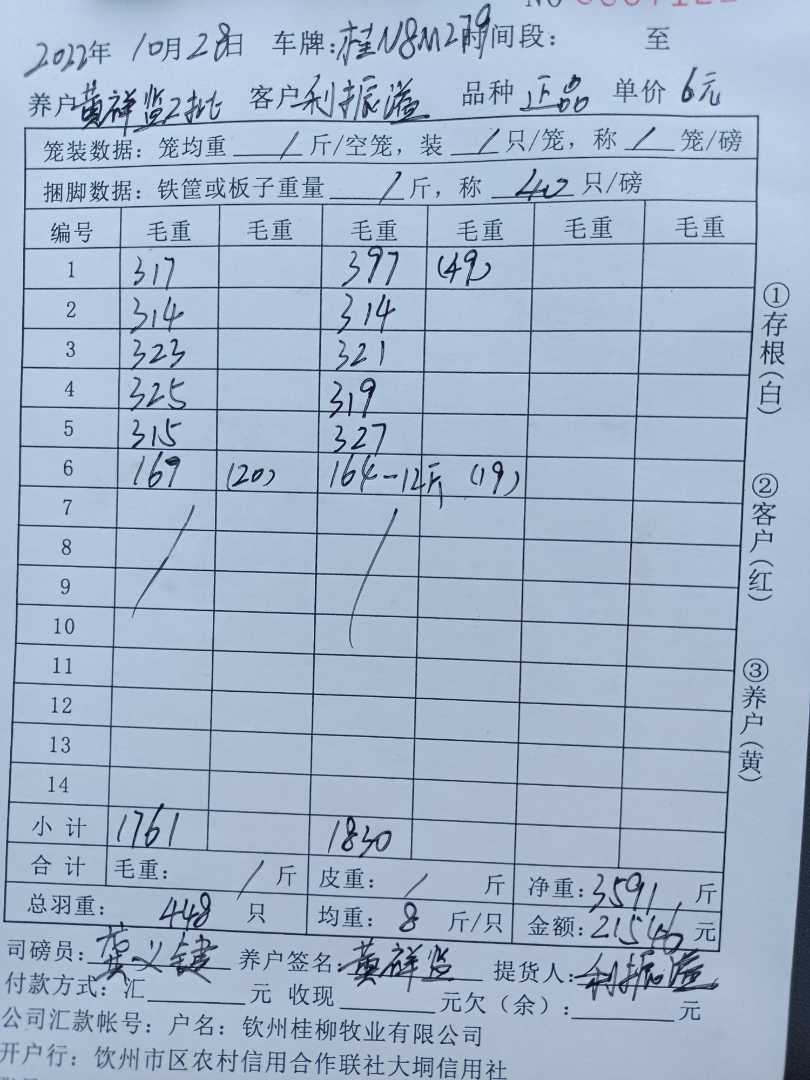 2022年 10月28日 车牌：桂N8M279 时间段： 至
养户 黄祥监2批 客户 利振溢 品种 正品 单价 6元
笼装数据：笼均重 / 斤/空笼，装 / 只/笼，称 / 笼/磅
捆脚数据：铁筐或板子重量 / 斤，称 40 只/磅
编号 毛重 毛重 毛重 毛重 毛重 毛重
1 317 397 (49)
2 314 314
3 323 321
4 325 319
5 315 327
6 169 (20) 164-12斤 (19)
7
8
9
10
11
12
13
14
小计 1761 1830
合计 毛重： / 斤 皮重： / 斤 净重：3591 斤
总羽重： 448 只 均重：8 斤/只 金额：21546 元
司磅员： 养户签名：黄祥监 提货人：利振溢
付款方式：汇 元 收现 元欠（余）： 元
公司汇款帐号：户名：钦州桂柳牧业有限公司
开户行：钦州市区农村信用合作联社大垌信用社
①存根（白）
②客户（红）
③养户（黄）